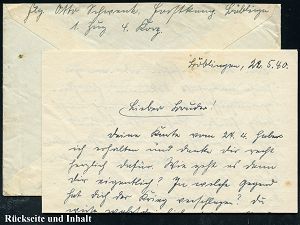 Otto Schwenk,
1. Zug 4. Korp.
Böblingen, 22.5.40.
Lieber Bruder!
Deine Karte vom 24.4. habe
ich erhalten und danke dir recht
herzlich dafür. Wie geht es denn
dir eigentlich? In welche Gegend
hat dich der Krieg verschlagen? Du
Rückseite und Inhalt